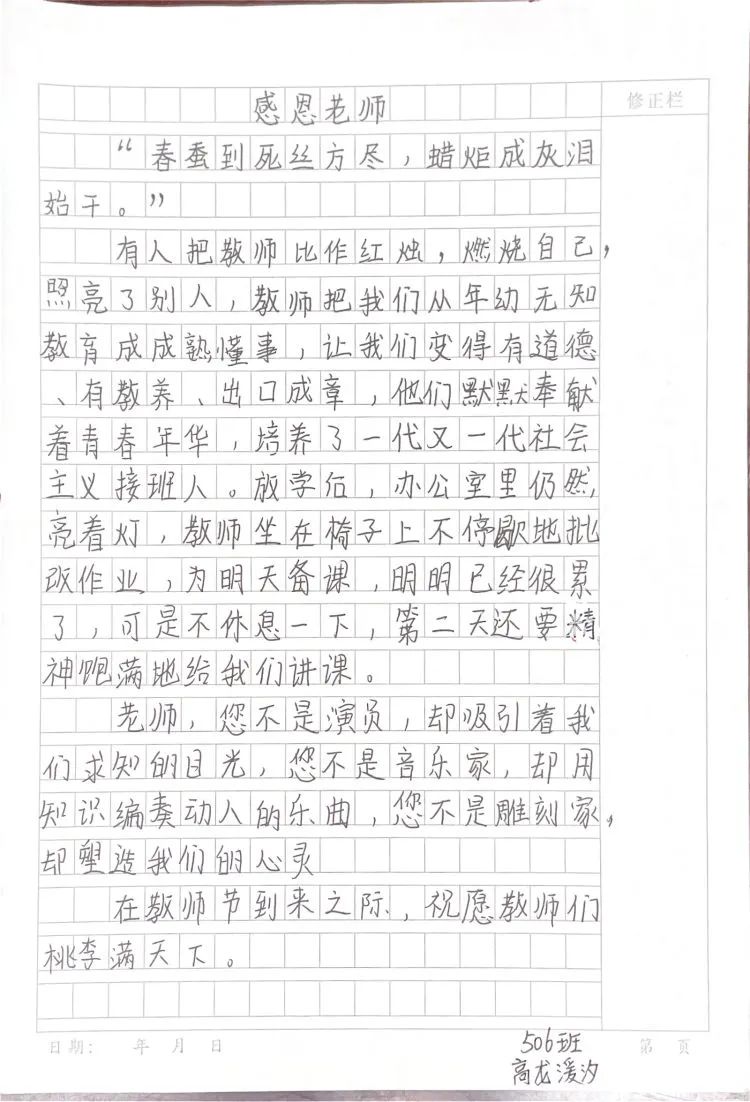 感恩老师
修正栏
“春蚕到死丝方尽，蜡炬成灰泪
始干。”
有人把教师比作红烛，燃烧自己，
照亮了别人，教师把我们从年幼无知
教育成成熟懂事，让我们变得有道德
、有教养、出口成章，他们默默奉献
着青春年华，培养了一代又一代社会
主义接班人。放学后，办公室里仍然
亮着灯，教师坐在椅子上不停歇地批
改作业，为明天备课，明明已经很累
了，可是不休息一下，第二天还要精
神饱满地给我们讲课。
老师，您不是演员，却吸引着我
们求知的目光，您不是音乐家，却用
知识编奏动人的乐曲，您不是雕刻家，
却塑造我们的心灵
在教师节到来之际，祝愿教师们
桃李满天下。
日期： 年 月 日
506班
高龙湲汐
第 页